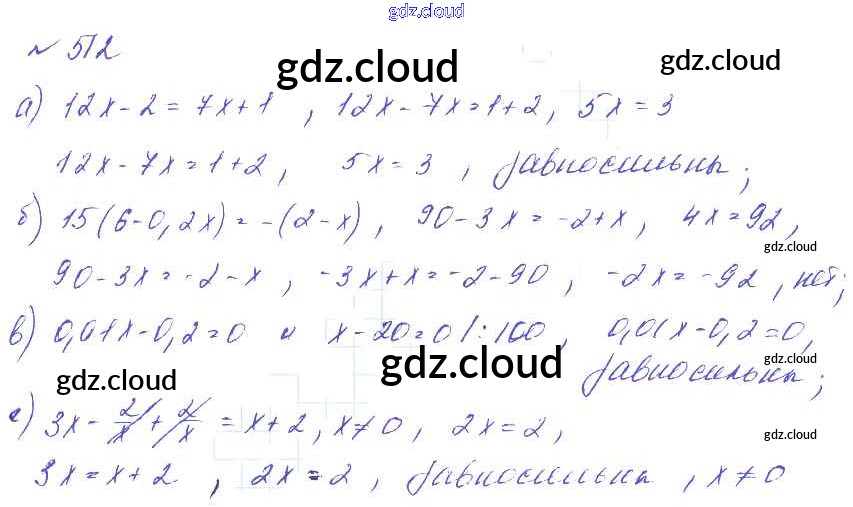 gdz.cloud
№ 512
gdz.cloud
gdz.cloud
а) 12x - 2 = 7x + 1 , 12x - 7x = 1 + 2, 5x = 3
12x - 7x = 1 + 2, 5x = 3 , равносильны;
б) 15(6 - 0,2x) = -(2 - x), 90 - 3x = -2 + x, 4x = 92,
gdz.cloud
90 - 3x = -2 - x , -3x + x = -2 - 90 , -2x = -92 , нет;
в) 0,01x - 0,2 = 0 и x - 20 = 0 /: 100 , 0,01x - 0,2 = 0,
gdz.cloud
gdz.cloud
gdz.cloud
равносильны;
г) 3x - 2/x + 2/x = x + 2, x ≠ 0, 2x = 2,
gdz.cloud
3x = x + 2 , 2x = 2 , равносильны , x ≠ 0